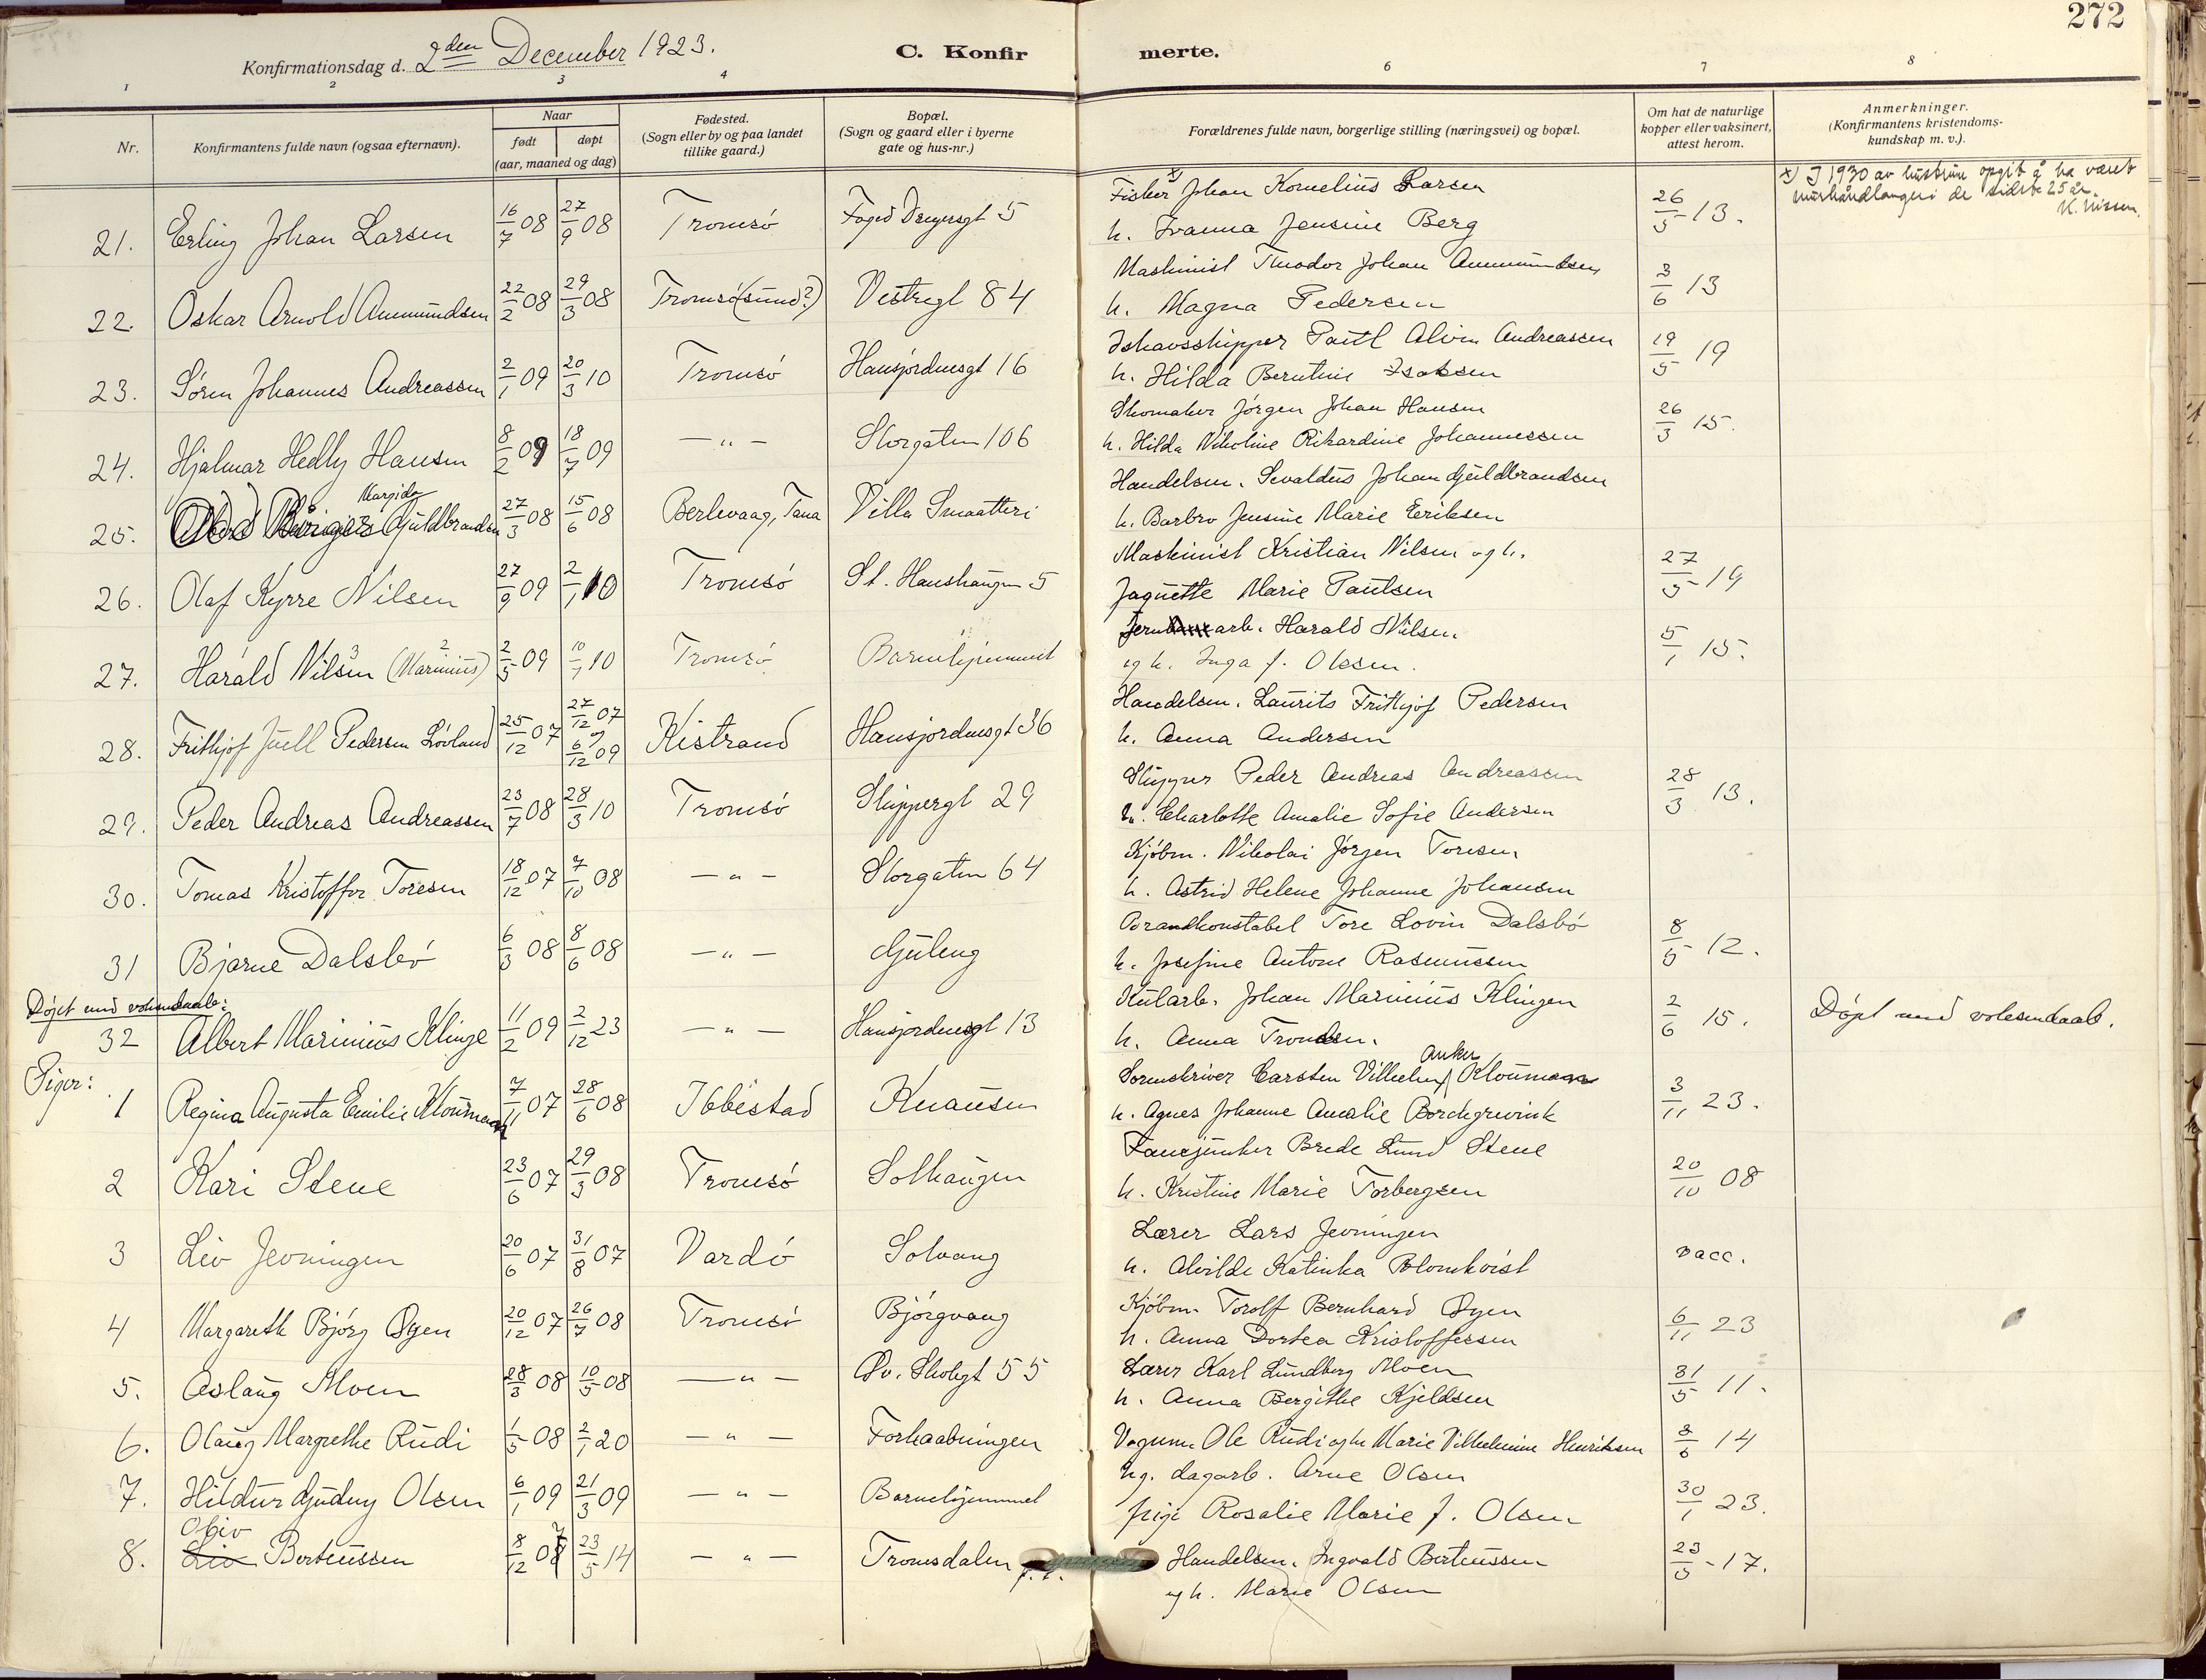 272
Konfirmationsdag d. 2den December 1923.
C. Konfirmerte.
1 2 3 4 6 7 8
Nr.
Konfirmantens fulde navn (ogsaa efternavn).
Naar
født døpt
(aar, maaned og dag)
Fødested.
(Sogn eller by og paa landet
tillike gaard.)
Bopæl.
(Sogn og gaard eller i byerne
gate og hus-nr.)
Forældrenes fulde navn, borgerlige stilling (næringsvei) og bopæl.
Om hat de naturlige
kopper eller vaksinert,
attest herom.
Anmerkninger.
(Konfirmantens kristendoms-
kundskap m. v.).
21. Erling Johan Larsen 16/7 08 27/9 08 Tromsö Foged Dreyersgt 5
Fisker x) Johan Kornelius Larsen
h. Ivanna Jensine Berg 26/5 13.
x) I 1930 av hustrun opgit å ha været
murhåndlanger i de sidste 25 år.
K. Nissen.
22. Oskar Arnold Ammundsen 22/2 08 29/3 08 Tromsö(sund?) Vestregt 84
Maskinist Theodor Johan Ammundsen
h. Magna Pedersen 3/6 13
23. Sören Johannes Andreassen 2/1 09 20/3 10 Tromsö Hansjordnesgt 16
Ishavsskipper Paul Alvin Andreassen
h. Hilda Berntine Isaksen 19/5 19
24. Hjalmar Hedly Hansen 8/2 09 18/7 09 — " — Storgaten 106
Skomaker Jörgen Johan Hansen
h. Hilda Nikoline Rikardine Johannessen 26/3 15.
25. Margido Guldbrandsen 27/3 08 15/6 08 Berlevaag, Tana Villa Smaatteri
Handelsm. Sevaldus Johan Guldbrandsen
h. Barbro Jensine Marie Eriksen
26. Olaf Kyrre Nilsen 27/9 09 2/1 10 Tromsö St. Hanshaugen 5
Maskinist Kristian Nilsen og h.
Jaquette Marie Paulsen 27/5 19
27. Harald Nilsen 3 (Marinius) 2 2/5 09 10/1 10 Tromsö Barnehjemmet
Jern arb. Harald Nilsen.
og h. Inga f. Olssen. 5/1 15.
28. Frithjof Juell Pedersen Lövland 25/12 07 27/12 07 og 6/12 09 Kistrand Hansjordnesgt 36
Handelsm. Laurits Frithjof Pedersen
h. Anna Andersen
29. Peder Andreas Andreassen 23/7 08 28/3 10 Tromsö Skippergt 29
Skipper Peder Andreas Andreassen
h. Charlotte Amalie Sofie Andersen 28/3 13.
30. Tomas Kristoffer Toresen 18/12 07 7/10 08 — " — Storgaten 64
Kjöbm. Nikolai Jörgen Toresen
h. Astrid Helene Johanne Johansen
31 Bjarne Dalsbö 6/3 08 8/6 08 — " — Guleng
Brandkonstabel Tore Lovin Dalsbö
h. Josefine Antone Rasmussen 8/5 12.
Döpt med voksendaab:
32 Albert Marinius Klinge 11/2 09 2/12 23 — " — Hansjordnesgt 13
Kularb. Johan Marinius Klingen
h. Anna Trondsen. 2/6 15. Döpt med voksendaab.
Piger:
1 Regina Augusta Emilie Kloumann 7/11 07 28/6 08 Ibbestad Knausen
Sorenskriver Carsten Vilhelm Anker Kloumann
h. Agnes Johanne Amalie Borchgrevink 3/11 23.
2 Kari Stene 23/6 07 29/3 08 Tromsö Solhaugen
Fanejunker Brede Lund Stene
h. Kristine Marie Torbergsen 20/10 08
3 Liv Jevningen 20/6 07 31/8 07 Vardö Solvang
Lærer Lars Jevningen
h. Alvilde Katinka Blomkvist vacc.
4 Margareth Bjórg Øyen 20/12 07 26/7 08 Tromsö Bjórgvang
Kjöbm. Torolf Bernhard Øyen
h. Anna Dortea Kristoffersen 6/11 23
5. Aslaug Moen 28/3 08 10/5 08 — " — Øv. Skolegt 55
Lærer Karl Lundberg Moen
h. Anna Bergithe Kjeldsen 31/5 11.
6. Olaug Margrethe Rudi 1/5 08 2/1 20 — " — Forhaabningen
Vognm. Ole Rudi og h. Marie Vilhelmine Henriksen 3/6 14
7. Hildur Gudny Olsen 6/1 09 21/3 09 — " — Barnehjemmet
Ug. dagarb. Arne Olsen
pige Rosalie Marie J. Olsen 30/1 23.
8. Oliv Liv Berteussen 8/12 07 23/5 14 — " — Tromsdalen
Handelsm. Ingvald Berteussen
og h. Marie Olsen 23/5 17.